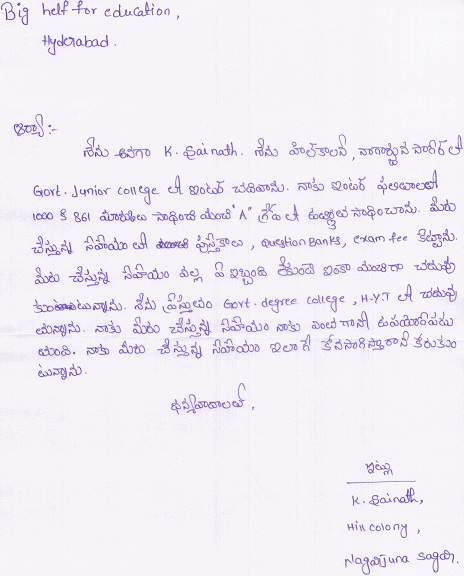 Big help for education,
Hyderabad.
ఆర్యా:-
నేను అనగా K. Sainath. నేను హిల్‌కాలని, నాగార్జున సాగర్ లో
Govt. Junior college లో ఇంటర్ చదివాను. నాకు ఇంటర్ ఫలితాలలో
1000 కి 861 మార్కులు సాధించి మంచి "A" గ్రేడ్ లో ఉత్తీర్ణత సాధించాను. మీరు
చేస్తున్న సహాయం లో పుస్తకాలు, Question Banks, exam fee కట్టాను.
మీరు చేస్తున్న సహాయం వల్ల ఏ ఇబ్బంది లేకుండా ఇంకా మంచిగా చదువు
కుంటున్నాను. నేను ప్రస్తుతం Govt. degree college, H.Y.T లో చదువు
తున్నాను. నాకు మీరు చేస్తున్న సహాయం నాకు ఎంతగానో ఉపయోగపడు
తుంది. నాకు మీరు చేస్తున్న సహాయం ఇలాగే కొనసాగిస్తారని కోరుకుం
టున్నాను.
ధన్యవాదాలతో,
ఇట్లు
K. Sainath,
Hill colony,
Nagarjuna sagar.